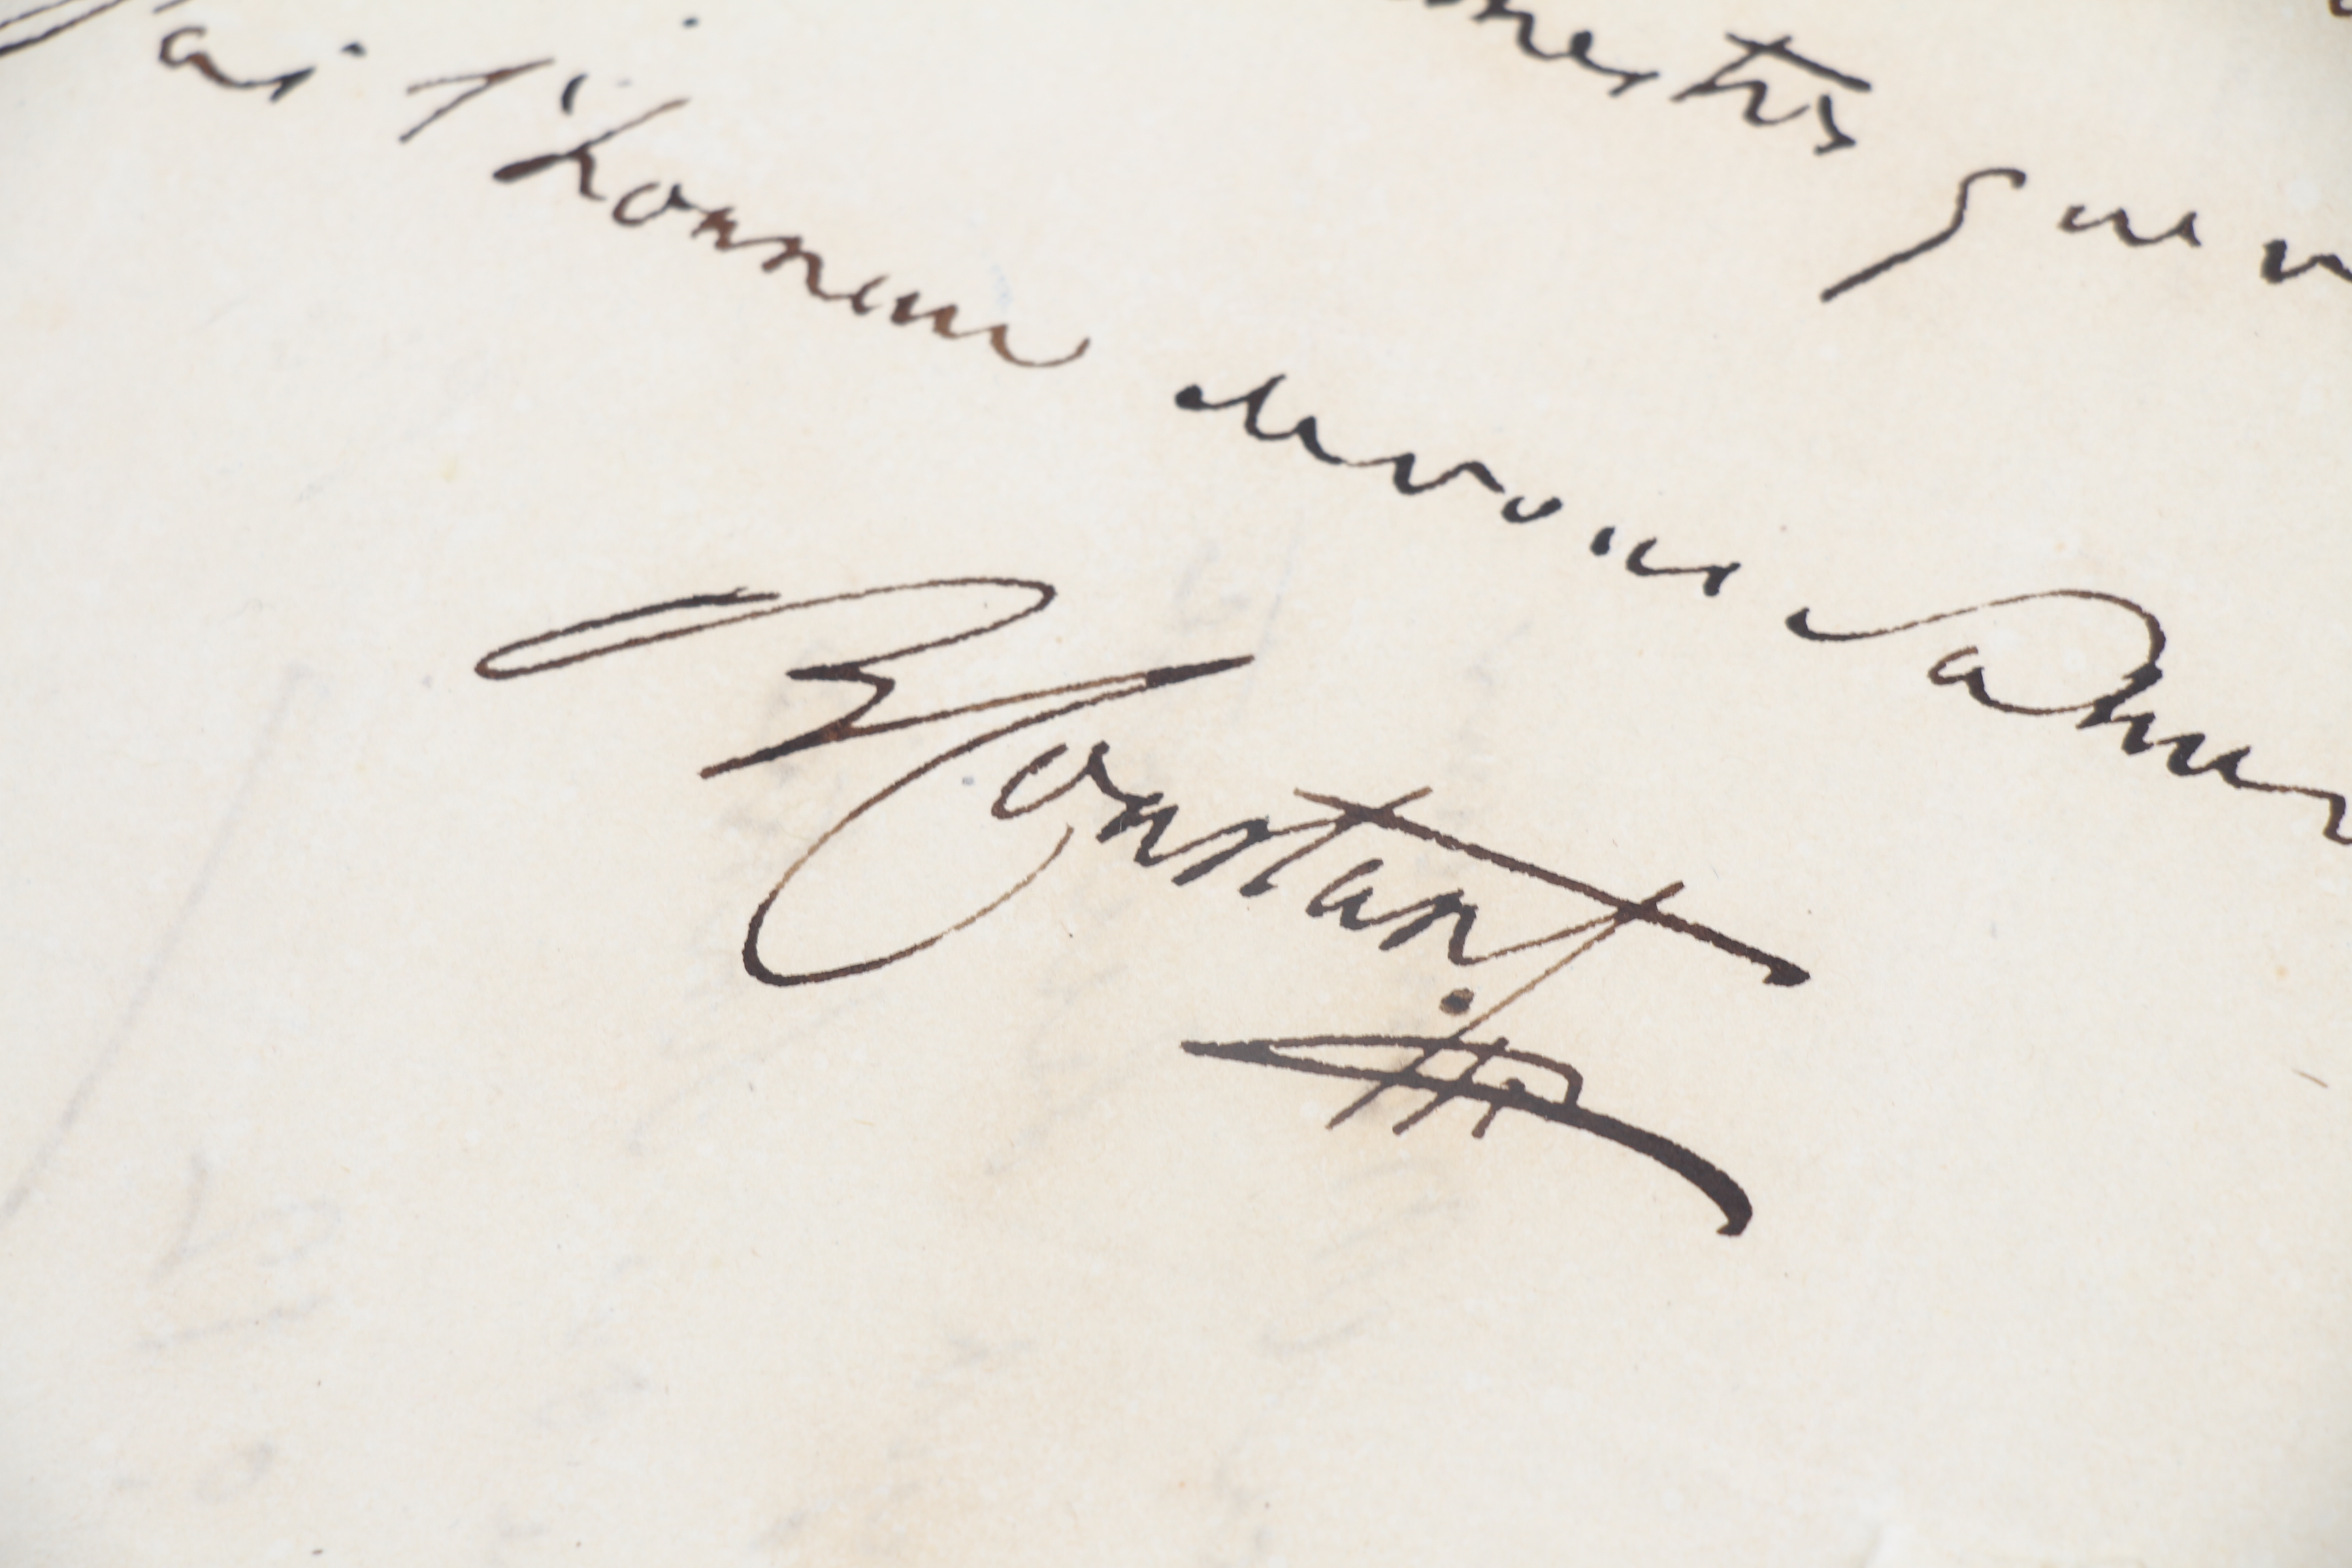 mestres que
J'ai l'honneur de vous saluer
B Constant